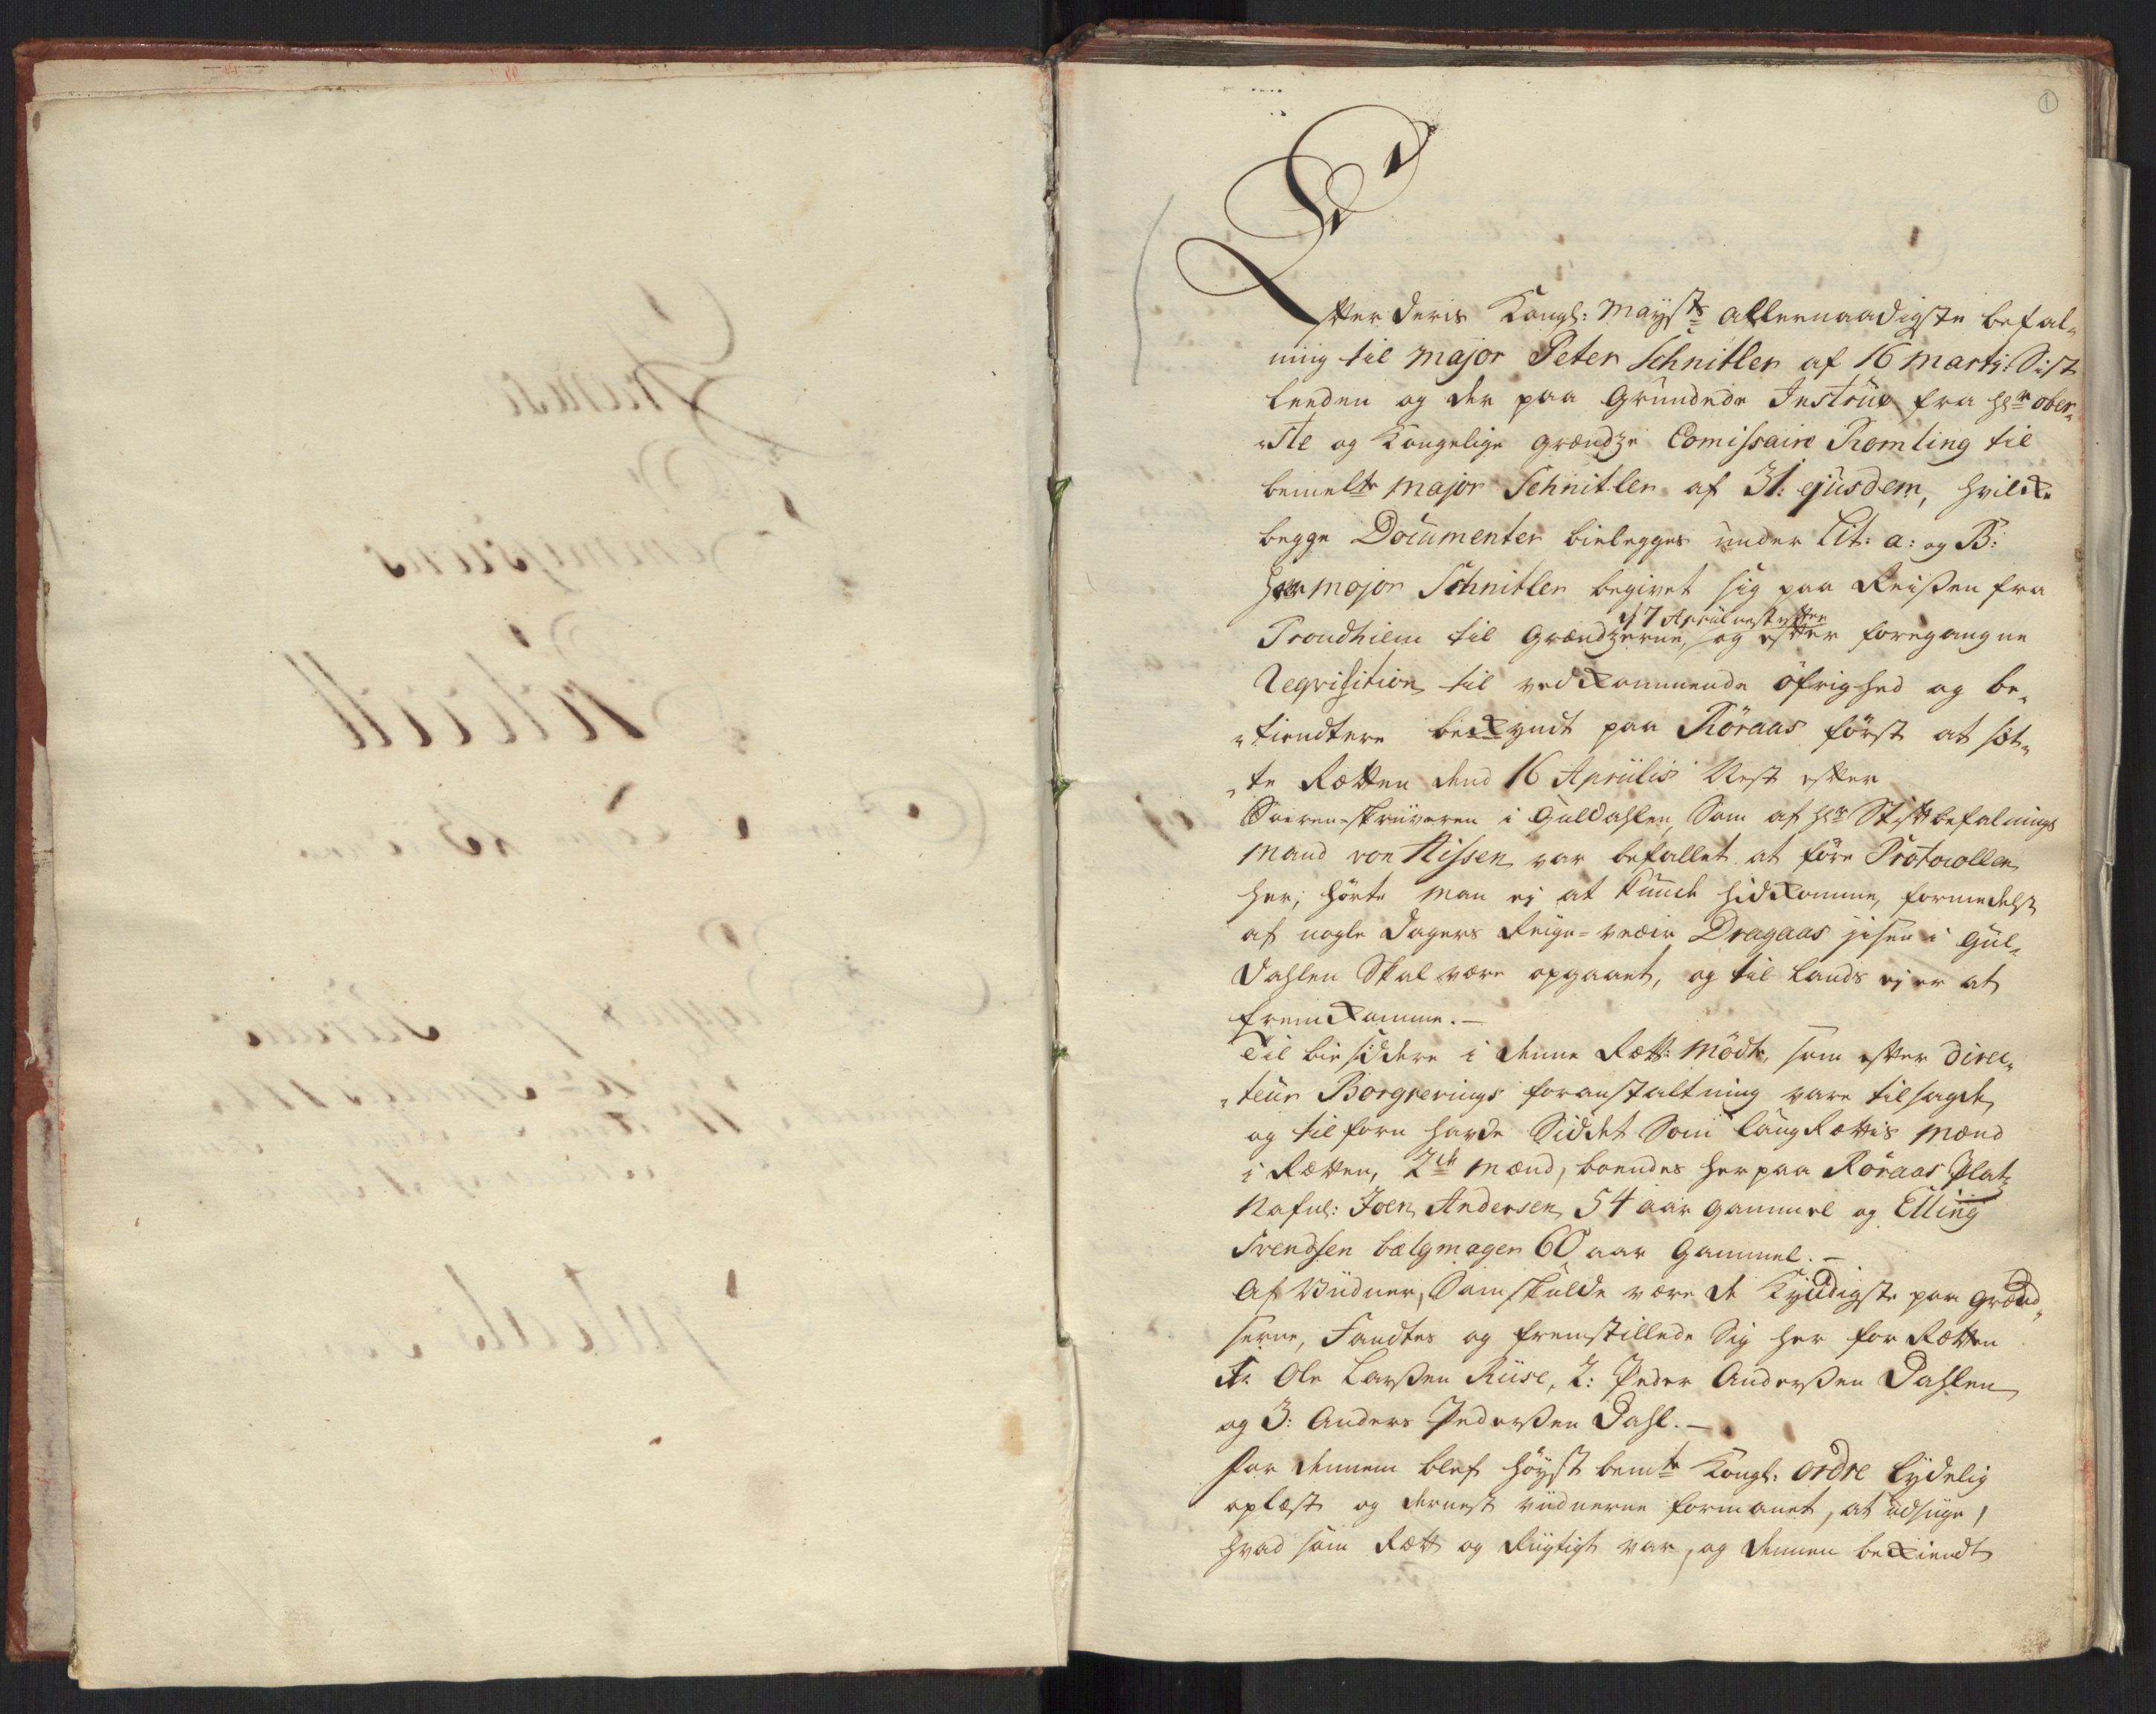 1
Efter deris Kongl: Mayst:s allernaadigste befal„
ning til Major Peter Schnitler af 16 Martij: Sist
leeden og der paa grundede Instrux fra Hr Ober„
„ste og Kongelige grændze Comissaire Romling til
bemelte Major Schnitler af 31: ejusdem, hvilcke
begge Documenter bielegges under Lit: a: og B:
Her Major Schnitler begivet sig paa Reisen fra
d 7 April nest efter
Trondhiem til Grændzerne, og efter foregangne
Reqvisition til vedkommende öfrighed og be„
„tiendtere bekyndt paa Röraas först at sæt„
„te Rætten dend 16 Aprilis Nest efter
Soren-skriveren i Guldahlen, Som af Hr Stiftbefalnings
Mand von Nissen var befallet at före Protocollen
her; hörte man ej at kunde hidkomme, formedelst
af nogle Dagers Reign-veær Dragaas jisen i Gul„
Dahlen Skal være opgaaet, og til Lands ej er at
fremkomme. —
Til bie siddere i denne Ræt: Mödte, som efter Direc„
„teur Borgrevings foranstaltning vare tilsagde,
og tilforn havde Siddet Som LaugRættis Mænd
i Rætten, 2de Mænd, boendes her paa Röraas Plat„
Nafnl: Joen Andersen 54 aar gammel og Elling
Svendsen bælgmager 60 aar Gammel. —
Af Viidner, Som skulde være de Kyndigste paa Grænd„
serne, Fandtes og fremstillede Sig her for Rætten
1: Ole Larsen Riise, 2: Peder Andersen Dahlen
og 3: Anders Pedersen Dahl. —
For dennem blef höyst bemte Kongl: ordre lydelig
oplæst og dernest viidnerne formanet, at udsige,
hvad som Ræt og Riigtigt var, og dennem bekiendt